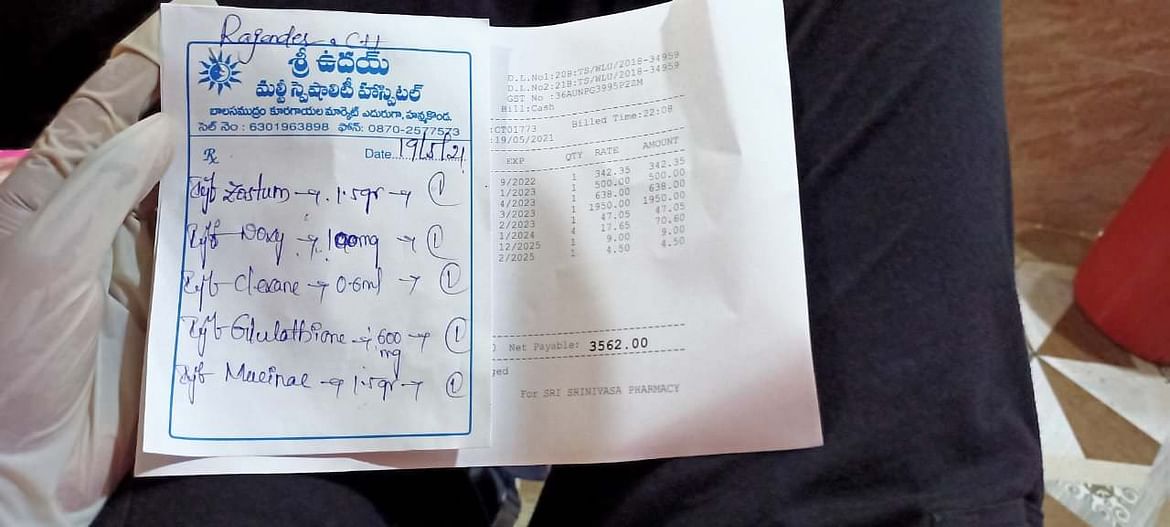 Rajender. CH
శ్రీ ఉదయ్
మల్టీ స్పెషాలిటీ హాస్పిటల్
బాలసముద్రం కూరగాయల మార్కెట్ ఎదురుగా, హన్మకొండ.
సెల్ నెం : 6301963898 ఫోన్: 0870-2577573
Rx Date 19/5/21
Inj Zostum → 1.5gr → 1
Inj Doxy → 100mg → 1
Inj Clexane → 0.6ml → 1
Inj Glutathione → 600 mg → 1
Inj Mucinac → 1.5gr → 1
D.L.No1:20B:TS/WLU/2018-34959
D.L.No2:21B:TS/WLU/2018-34959
GST No :36AUNPG3995P2ZM
Bill:Cash
:CT01773 Billed Time:22:08
:19/05/2021
EXP QTY RATE AMOUNT
9/2022 1 342.35 342.35
1/2023 1 500.00 500.00
4/2023 1 638.00 638.00
3/2023 1 1950.00 1950.00
2/2023 1 47.05 47.05
1/2024 4 17.65 70.60
12/2025 1 9.00 9.00
2/2025 1 4.50 4.50
Net Payable: 3562.00
ged
For SRI SRINIVASA PHARMACY